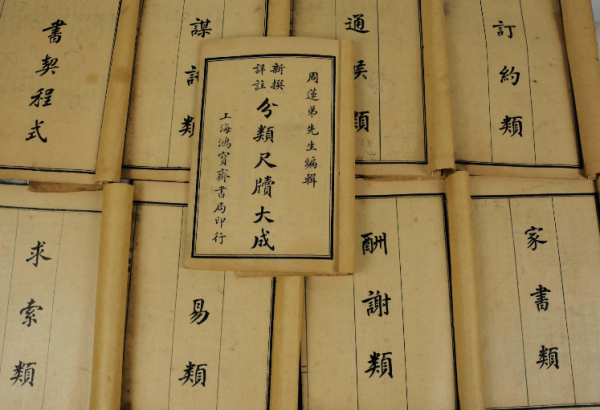 訂約類
通候類
謀
類
書契程式
周蓮弟先生編輯
新撰
詳註
分類尺牘大成
上海鴻寶齋書局印行
家書類
酬謝類
易類
求索類